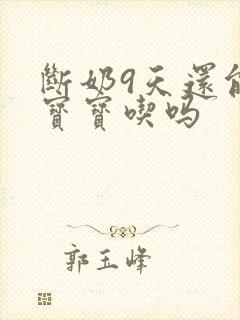 斷奶9天還能
寶寶喫吗
郭玉峰